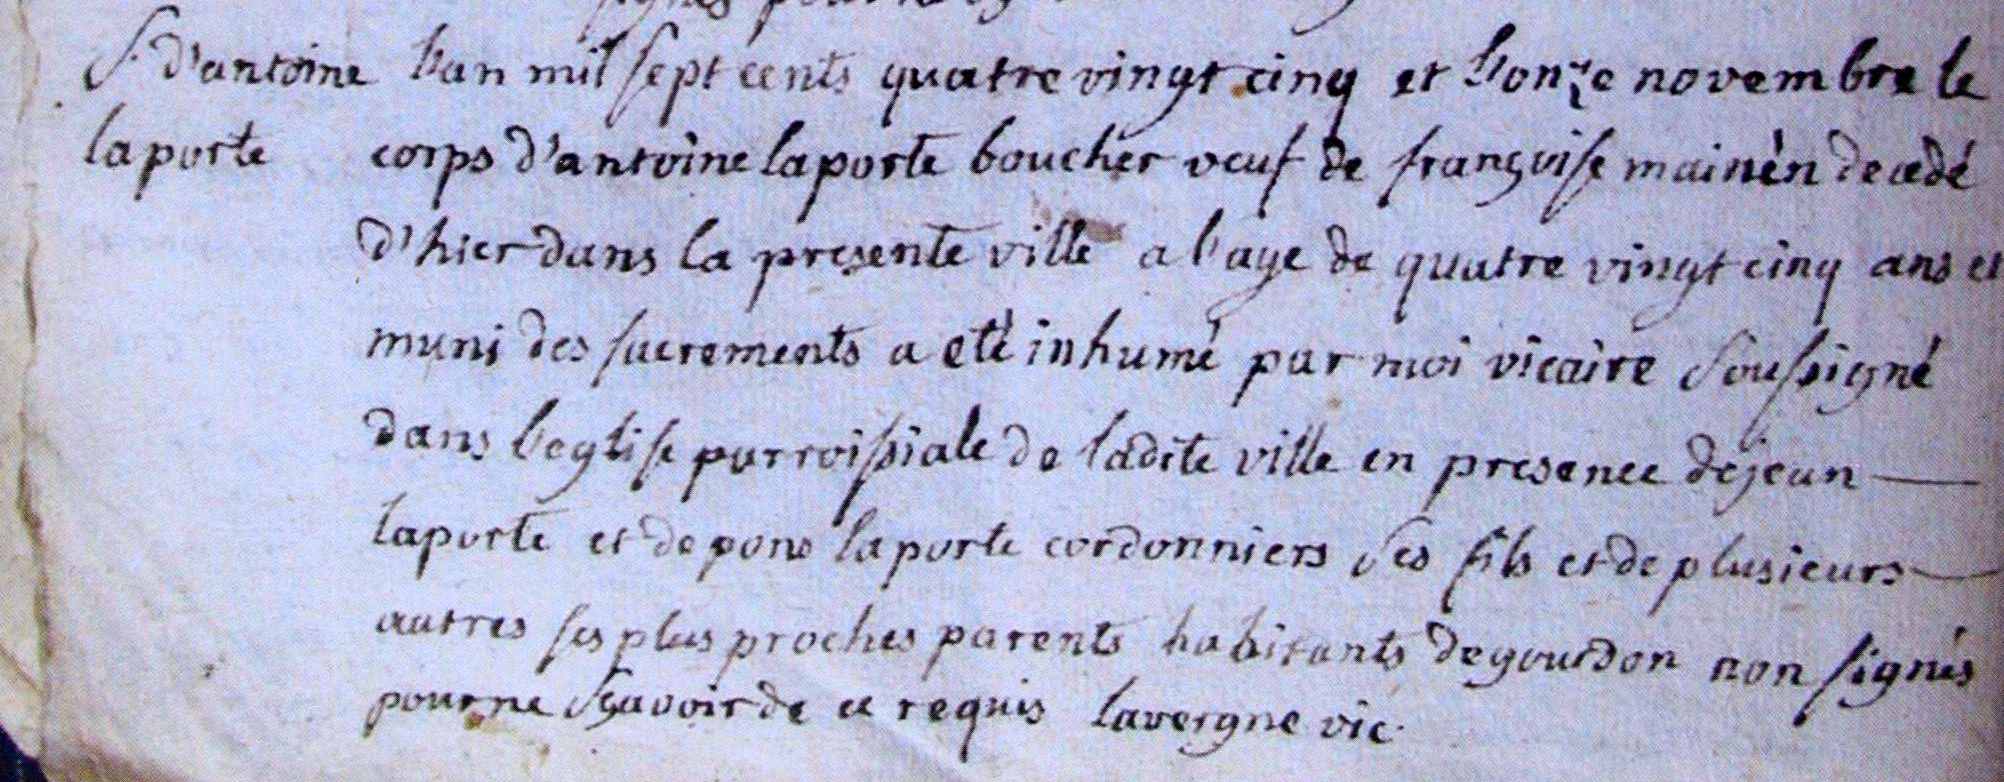 S. d'antoine
laporte
l'an mil sept cents quatre vingt cinq et l'onze novembre le
corps d'antoine laporte boucher veuf de françoise mainèn decedé
d'hier dans la presente ville a l'age de quatre vingt cinq ans et
muni des sacrements a eté inhumé par moi vicaire soussigné
dans l'eglise parroissiale de ladite ville en presence de jean
laporte et de pons laporte cordonniers ses fils et de plusieurs
autres ses plus proches parents habitants de gourdon non signés
pour ne sçavoir de ce requis lavergne vic.